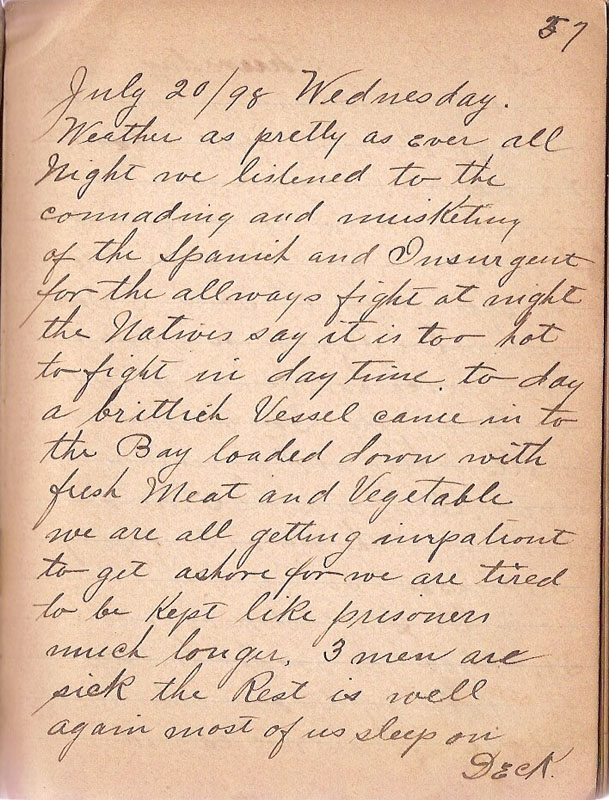 57
July 20/98 Wednesday.
Weather as pretty as ever all
Night we listened to the
connading and musketiny
of the Spanish and Insurgent
for the allways fight at night
the Natives say it is too hot
to fight in day time. to day
a brittich Vessel came in to
the Bay loaded down with
fresh Meat and Vegetable
we are all getting impatiout
to get ashore for we are tired
to be Kept like prisoners
much longer, 3 men are
sick the Rest is well
again most of us sleep on
Deck.